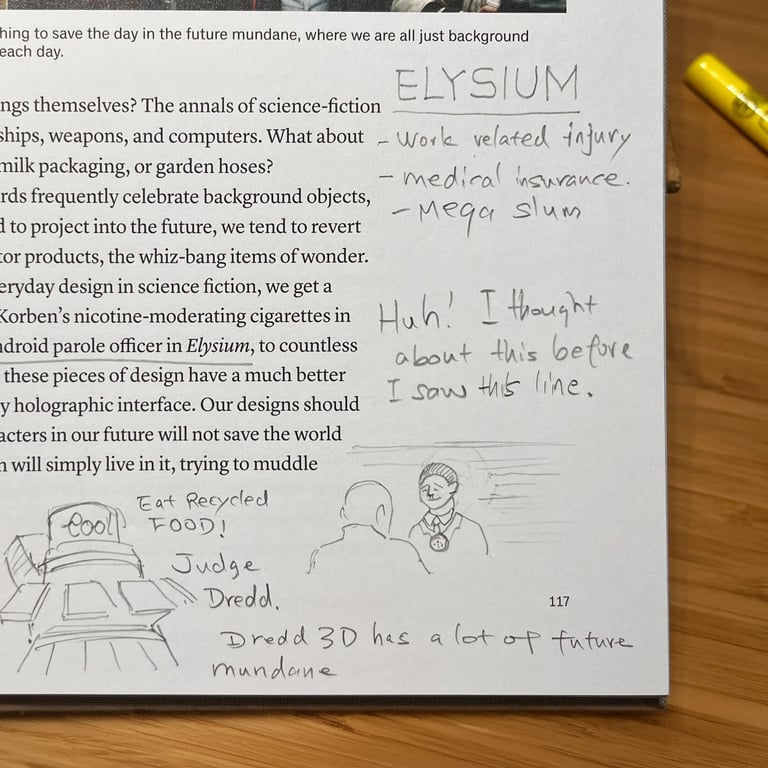 hing to save the day in the future mundane, where we are all just background
each day.
ELYSIUM
ngs themselves? The annals of science-fiction
ships, weapons, and computers. What about
- Work related injury
milk packaging, or garden hoses?
- medical insurance.
rds frequently celebrate background objects,
- Mega slum
d to project into the future, we tend to revert
tor products, the whiz-bang items of wonder.
eryday design in science fiction, we get a
Korben's nicotine-moderating cigarettes in
ndroid parole officer in Elysium, to countless
these pieces of design have a much better
y holographic interface. Our designs should
acters in our future will not save the world
n will simply live in it, trying to muddle
Huh! I thought
about this before
I saw this line.
Eat Recycled
FOOD!
Judge
Dredd.
117
Dredd 3D has a lot of future
mundane